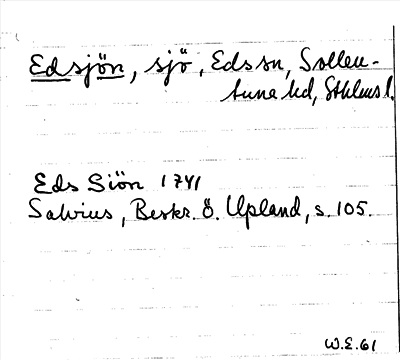 Edsjön, sjö, Eds sn, Sollen-
tuna hd, Sthlms l.
Eds Siön 1741
Salvius, Beskr. Ö. Upland, s. 105.
W.E.61